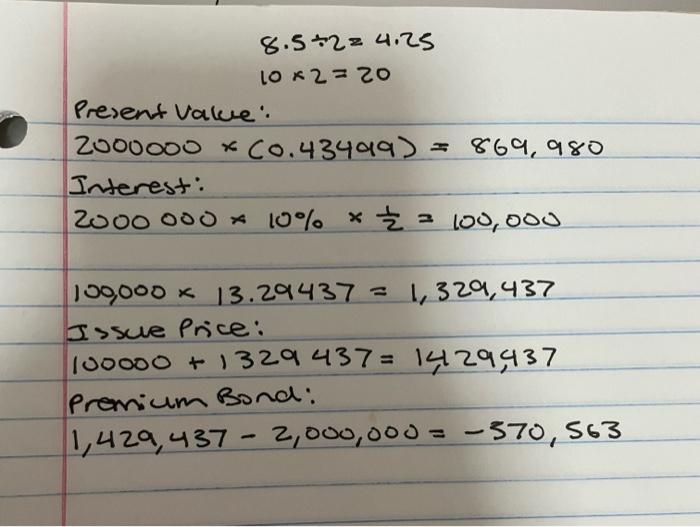 8.5÷2=4.25
10×2=20
Present Value:
2000000 × (0.43499) = 869,980
Interest:
2000 000 × 10% × 1/2 = 100,000
100,000 × 13.29437 = 1,329,437
Issue Price:
100000 + 1329 437 = 1,429,437
Premium Bond:
1,429,437 - 2,000,000 = -570,563